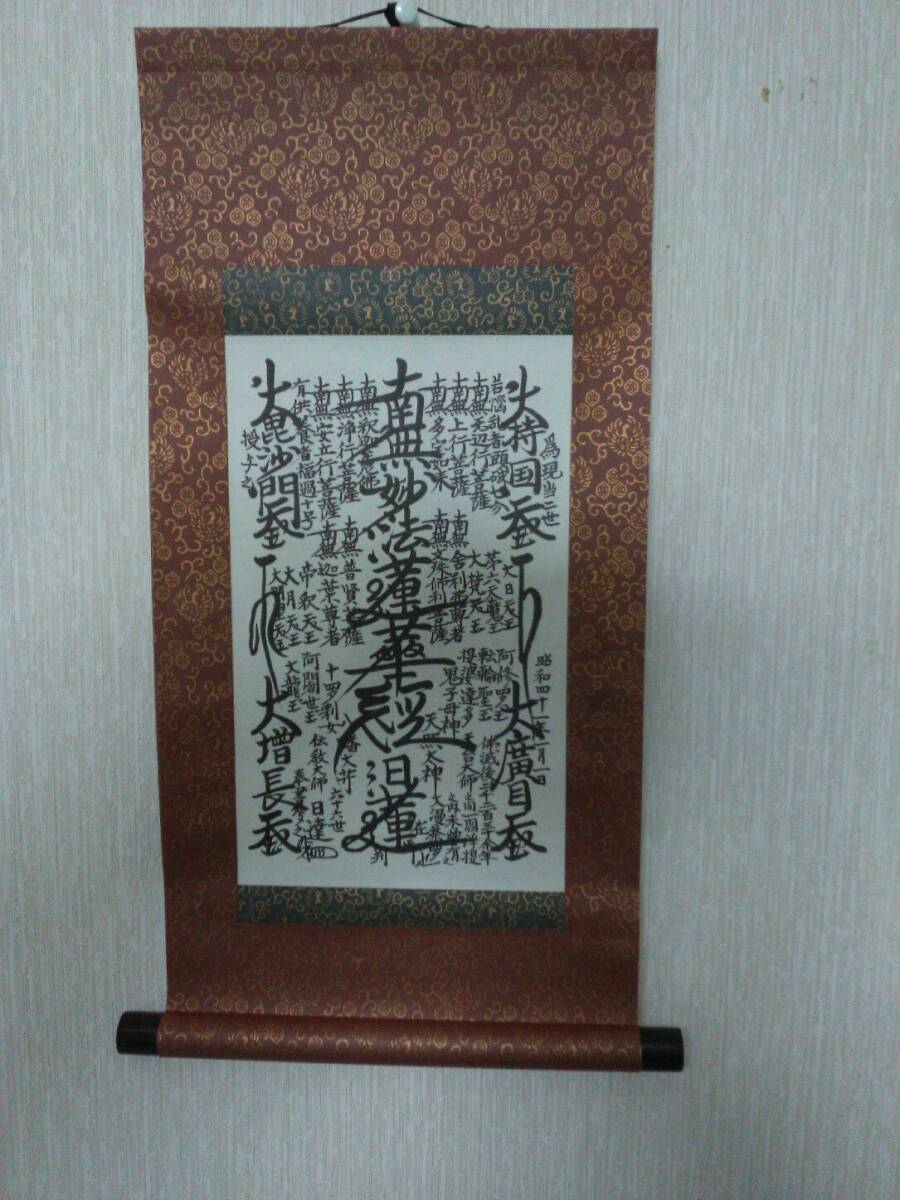 為現当二世
大持国天王
大廣目天王
昭和四十二年一月一日
若悩乱者頭破七分
南無无辺行菩薩
南無上行菩薩
南無多宝如来
大日天王
第六天魔王
大梵天王
南無舎利弗尊者
南無文殊師利菩薩
阿修羅王
転輪聖王
提婆達多
鬼子母神
天照太神
仏滅後二千二百三十余年
天台大師
之間一閻浮提
之内未曾有
大漫荼羅也
南無妙法蓮華経日蓮
在御判
南無釈迦牟尼仏
南無浄行菩薩
南無安立行菩薩
有供養者福過十号
南無普賢菩薩
南無迦葉尊者
帝釈天王
大月天王
大明星天王
八幡大菩薩
十羅刹女
阿闍世王
大龍王
伝教大師
六十六世
日達
奉書写之
大毘沙門天王
大増長天王
授与之